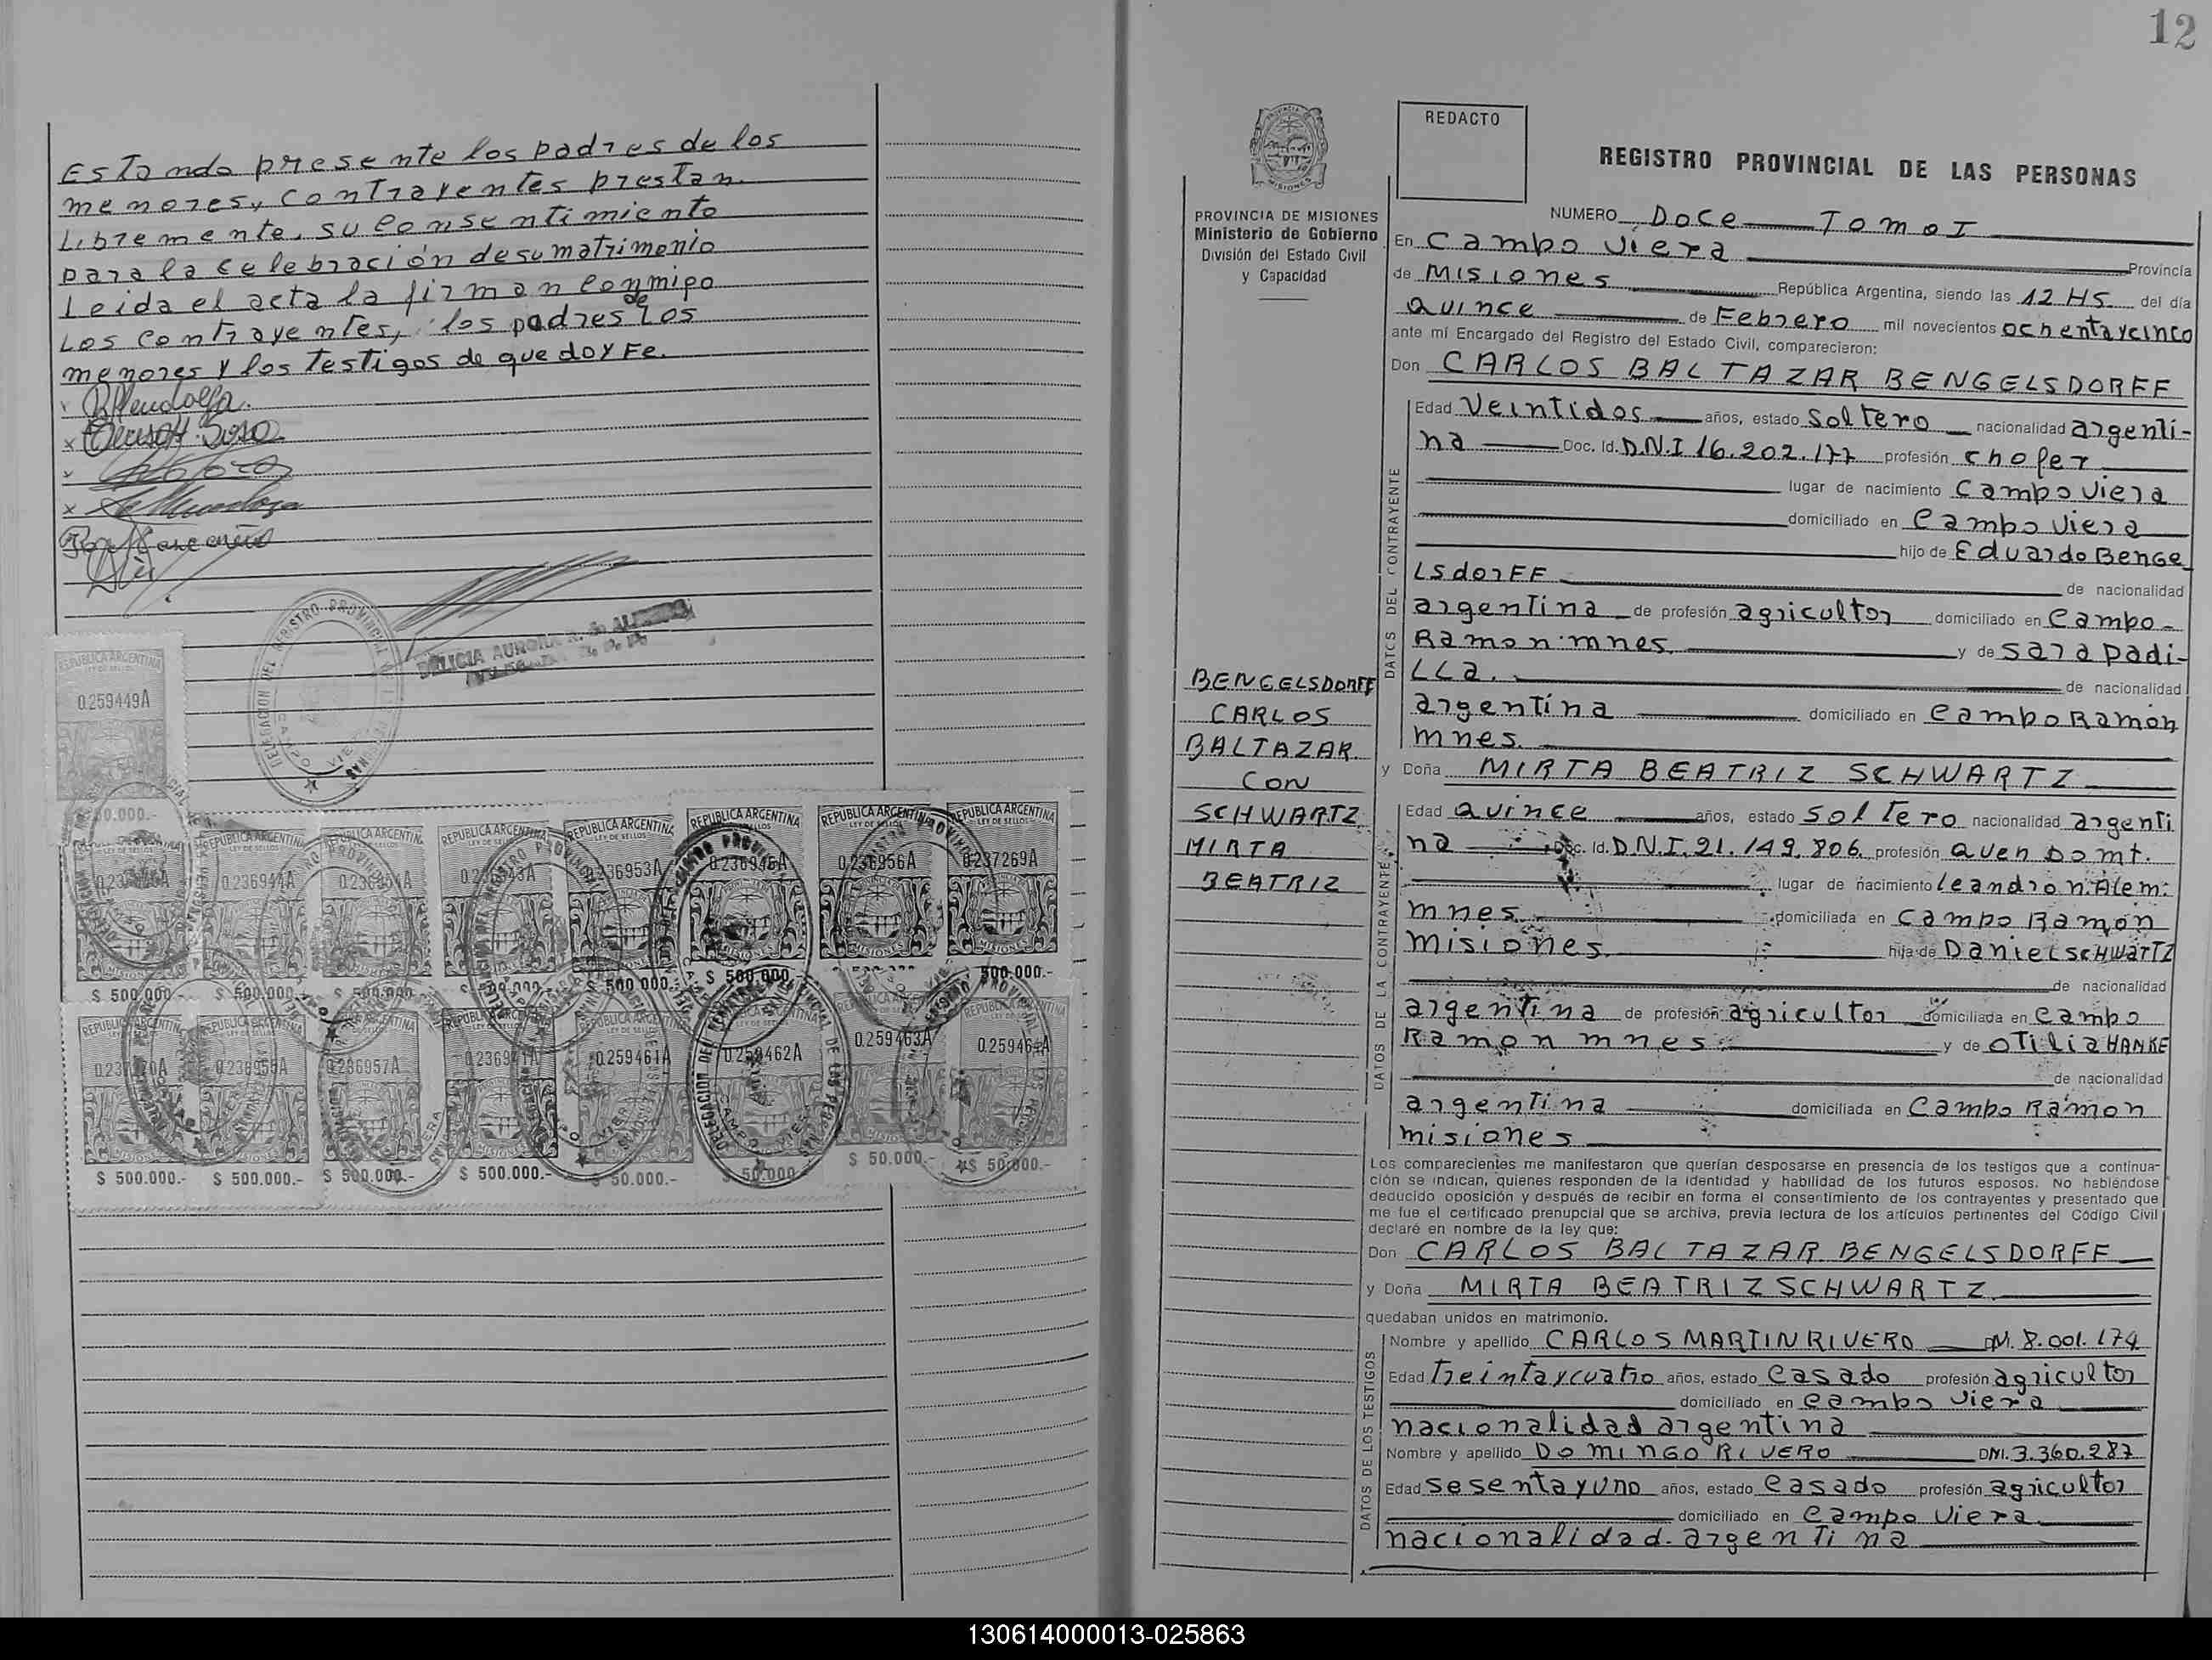 Estando presente los padres de los
menores, contrayentes prestan
Libremente, su consentimiento
para la celebración de su matrimonio
Leida el acta la firman conmigo
Los contrayentes, los padres de Los
menores y los testigos de que doy Fe.
REPUBLICA ARGENTINA
0.259449A
DELICIA AURORA
REPUBLICA ARGENTINA
LEY DE SELLOS
0.236944A
0.236953A
0.236956A
0.237269A
MISIONES
$ 500.000.-
0.236957A
0.259461A
0.259462A
0.259463A
$ 500.000.- $ 500.000.- $ 500.000.- $ 500.000.- $ 50.000.- 50.000.- $ 50.000.- $ 50.000.-
12
PROVINCIA DE MISIONES
Ministerio de Gobierno
División del Estado Civil
y Capacidad
BENGELSDORFF
CARLOS
BALTAZAR
CON
SCHWARTZ
MIRTA
BEATRIZ
REDACTO
REGISTRO PROVINCIAL DE LAS PERSONAS
NUMERO Doce Tomo I
En Campo Viera Provincia
de Misiones República Argentina, siendo las 12 HS. del día
quince de Febrero mil novecientos ochentaycinco
ante mí Encargado del Registro del Estado Civil, comparecieron:
Don CARLOS BALTAZAR BENGELSDORFF
DATOS DEL CONTRAYENTE
Edad Veintidos años, estado Soltero nacionalidad argenti-
na Doc. Id. D.N.I 16.202.177 profesión chofer
lugar de nacimiento Campo Viera
domiciliado en Campo Viera
hijo de Eduardo Benge
LsdorFF de nacionalidad
argentina de profesión agricultor domiciliado en Campo
Ramon mnes. y de Sara Padi-
LLa. de nacionalidad
argentina domiciliado en Campo Ramón
mnes.
y Doña MIRTA BEATRIZ SCHWARTZ
DATOS DE LA CONTRAYENTE
Edad quince años, estado Soltero nacionalidad argenti
na Doc. Id. D.N.I. 21.149.806. profesión quen Domt.
lugar de nacimiento leandro N. Alem.
mnes. domiciliada en Campo Ramón
misiones. hija de Daniel SCHWARTZ
de nacionalidad
argentina de profesión agricultor domiciliada en Campo
Ramon mnes. y de OTILIA HANKE
de nacionalidad
argentina domiciliada en Campo Ramon
misiones
Los comparecientes me manifestaron que querían desposarse en presencia de los testigos que a continua-
ción se indican, quienes responden de la identidad y habilidad de los futuros esposos. No habiéndose
deducido oposición y después de recibir en forma el consentimiento de los contrayentes y presentado que
me fue el certificado prenupcial que se archiva, previa lectura de los artículos pertinentes del Código Civil
declaré en nombre de la ley que:
Don CARLOS BALTAZAR BENGELSDORFF
y Doña MIRTA BEATRIZ SCHWARTZ
quedaban unidos en matrimonio.
DATOS DE LOS TESTIGOS
Nombre y apellido CARLOS MARTIN RIVERO DNI. 8.001.174
Edad Treintaycuatro años, estado Casado profesión agricultor
domiciliado en Campo Viera
nacionalidad argentina
Nombre y apellido DOMINGO RIVERO DNI. 3.360.287
Edad sesentayuno años, estado Casado profesión agricultor
domiciliado en Campo Viera
nacionalidad argentina
130614000013-025863